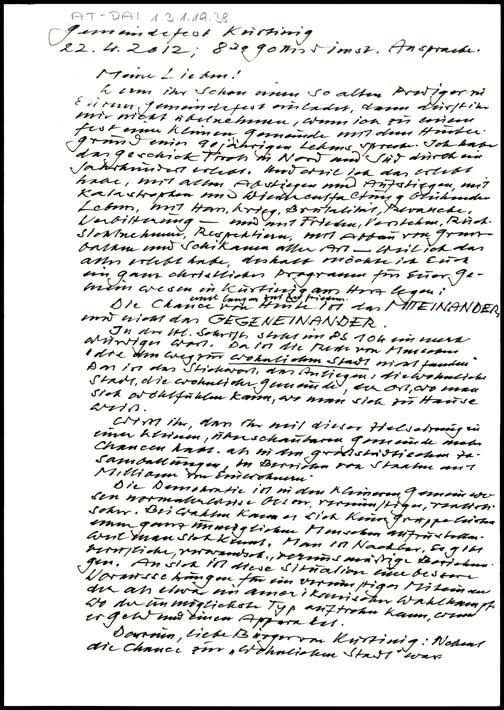 AT-DAI 13.1.19.38
Gemeindefest Kurtinig
22.4.2012; 8³⁰ Gottesdienst. Ansprache.
Meine Lieben!
Wenn ihr schon einen so alten Prediger zu
Eurem Gemeindefest einladet, dann dürft ihr
mir nicht übelnehmen, wenn ich zu einem
Fest einer kleinen Gemeinde mit dem Hinter-
grund eines 90jährigen Lebens spreche. Ich habe
das Geschick Tirols in Nord und Süd durch ein
Jahrhundert erlebt. Und weil ich das erlebt
habe, mit allen Abstiegen und Aufstiegen, mit
Katastrophen und Wiederentfaltung blühenden
Lebens, mit Hass, Krieg, Brutalität, Revanche,
Verbitterung – und mit Frieden, Verstehen, Rück-
sichtnehmen, Respektieren, mit Abbau von
und Schikanen aller Art – weil ich das
alles erlebt habe, deshalb möchte ich Euch
ein ganz christliches Programm für Euer Ge-
meinwesen in Kurtinig ans Herz legen:
Die Chance von Heute ist das MITEINANDER,
und nicht das GEGENEINANDER.
In der Hl. Schrift steht im PS 104 ein merk-
würdiges Wort. Da ist die Rede von Menschen
"die den Weg zur wohnlichen Stadt nicht fanden"
Das ist das Stichwort, das Anliegen: die wohnliche
Stadt, die wohnliche Gemeinde, der Ort, wo man
sich wohlfühlen kann, wo man sich zu Hause
weiß.
Wisst ihr, dass ihr mit dieser Zielsetzung in
einer kleinen, überschaubaren Gemeinde mehr
Chancen habt als in den großstädtischen Zu-
sammenballungen, in Bereichen von Staaten mit
Millionen von Einwohnern.
Die Demokratie ist in den kleineren Gemeinwe-
sen normalerweise besser, vernünftiger, realisti-
scher. Bei Wahlen kann es sich keine Gruppe leisten
einen ganz unmöglichen Menschen aufzustellen
weil man sich kennt. Man ist Nachbar. Es gibt
berufliche, verwandtsch., vereinsmäßige Beziehun-
gen. An sich ist diese Situation eine bessere
Voraussetzung für ein vernünftiges Miteinan-
der als etwa ein amerikanischer Wahlkampf
wo der unmöglichste Typ auftreten kann, wenn
er Geld und einen Apparat hat.
Darum, liebe Bürger von Kurtinig: Nehmt
die Chance zur "wohnlichen Stadt" wahr